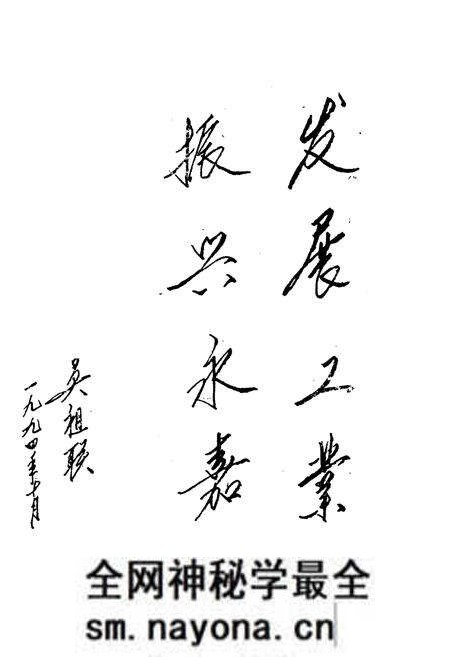 发展工业
振兴永嘉
吴祖联
一九九四年十月
全网神秘学最全
sm.nayona.cn